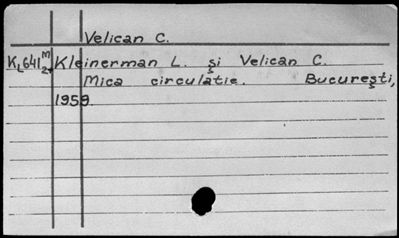 Velican C.
Kleinerman L. şi Velican C.
Mica circulatie. Bucureşti,
1959